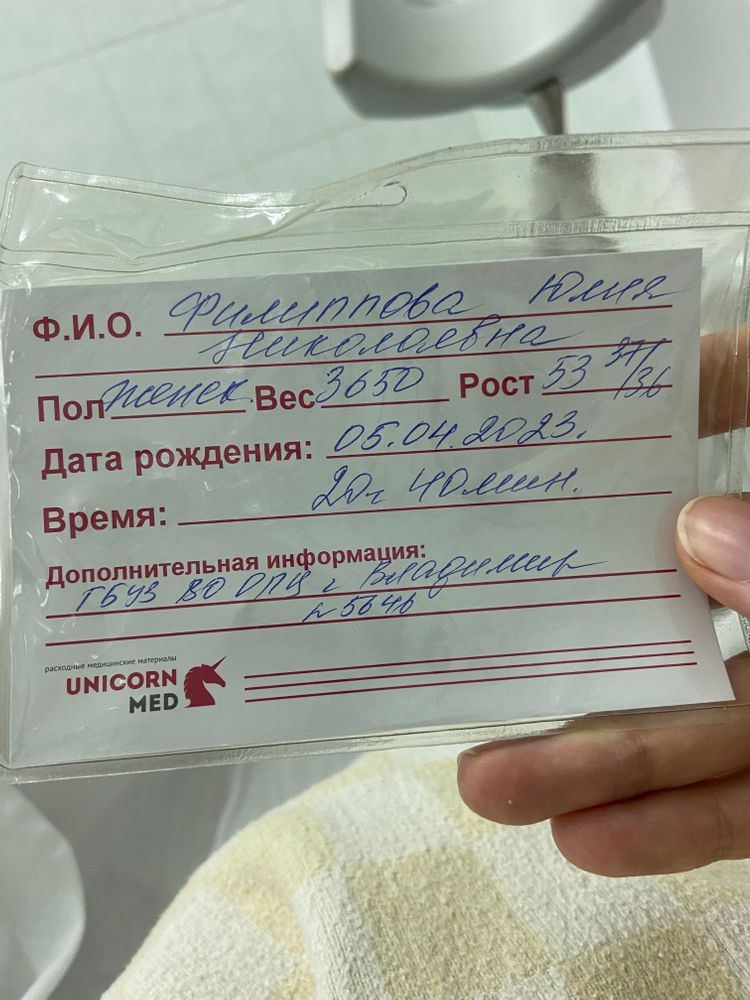 Ф.И.О. Филиппова Юлия
Николаевна
Пол женск. Вес 3650 Рост 53 37/36
Дата рождения: 05.04.2023.
Время: 20ч 40мин.
Дополнительная информация:
ГБУЗ ВО ОПЦ г Владимир
№5646
расходные медицинские материалы
UNICORN
MED